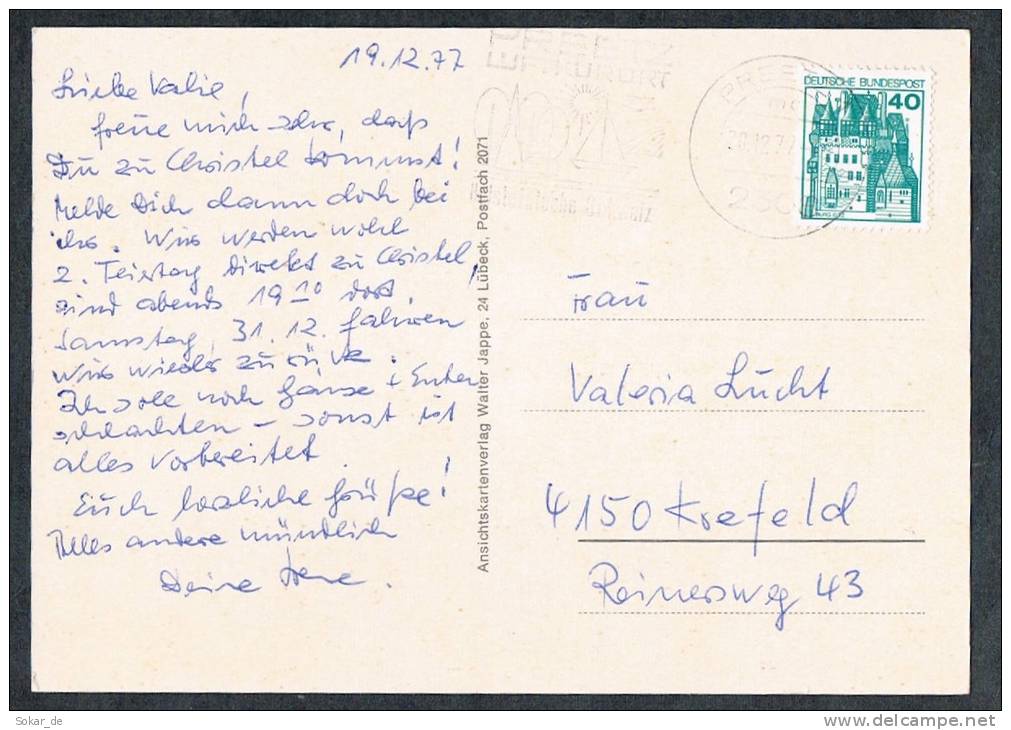 19.12.77
Liebe Valie,
freue mich sehr, daß
Du zu Christel kommst!
Melde Dich dann doch bei
ihr. Wir werden wohl
2. Feiertag direkt zu Christel,
sind abends 19 10 dort.
Samstag, 31.12. fahren
wir wieder zurück.
Ich soll noch Gänse + Enten
schlachten - sonst ist
alles vorbereitet.
Euch herzliche Grüße!
Alles andere mündlich
Deine Irene.
Ansichtskartenverlag Walter Jappe, 24 Lübeck, Postfach 2071
PREETZ
Holsteinische Schweiz
DEUTSCHE BUNDESPOST
40
Frau
Valeria Lücht
4150 Krefeld
Reinersweg 43
Sokar_de
www.delcampe.net